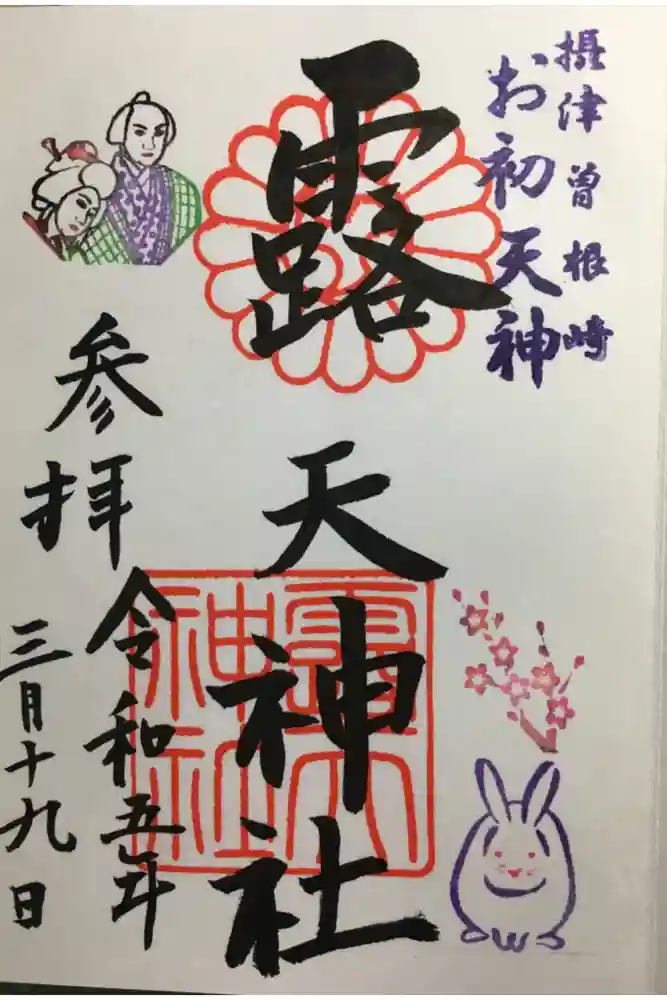 摂津曽根崎
お初天神
露天神社
参拝
令和五年
三月十九日
露天
神社